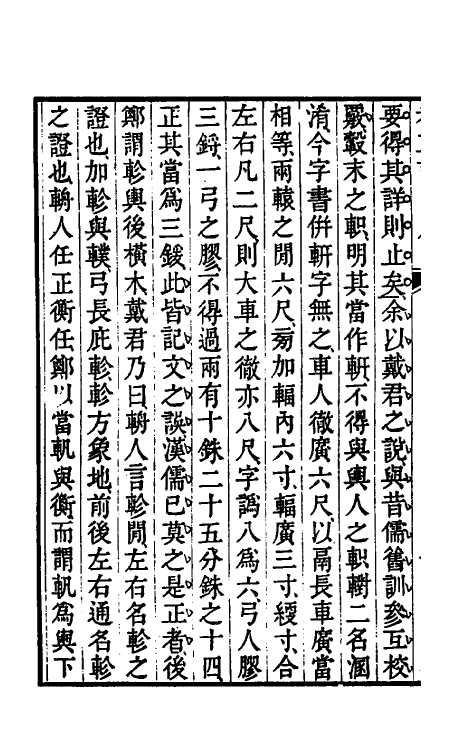 要得其詳則止矣余以戴君之說與昔儒舊訓參互校
覈轂末之軹明其當作軒不得與輿人之軹轛二名溷
淆今字書併軒字無之車人徹廣六尺以鬲長車廣當
相等兩轅之閒六尺㫄加輻內六寸輻廣三寸綆寸合
左右凡二尺則大車之徹亦八尺字譌八為六弓人膠
三鋝一弓之膠不得過兩有十銖二十五分銖之十四
正其當為三鍰此皆記文之誤漢儒已莫之是正者後
鄭謂軫輿後橫木戴君乃曰輈人言軫閒左右名軫之
證也加軫與轐弓長庇軫軫方象地前後左右通名軫
之證也輈人任正衡任鄭以當軓與衡而謂軓為輿下